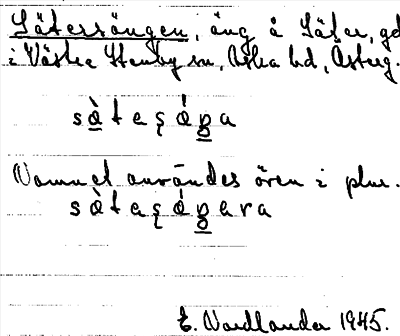 Sätersängen, äng å Säter, gd
i Västra Stenby sn, Aska hd, Österg.
Namnet användes även i plur.
E. Nordlander 1945.